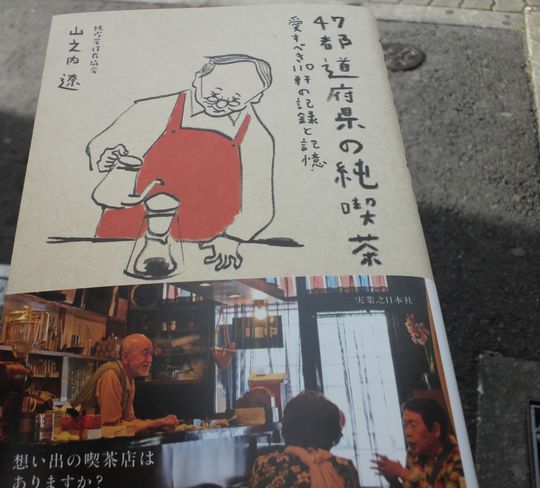 47都道府県の純喫茶
愛すべき110軒の記録と記憶
純喫茶保存協会
山之内遼
実業之日本社
想い出の喫茶店は
ありますか?